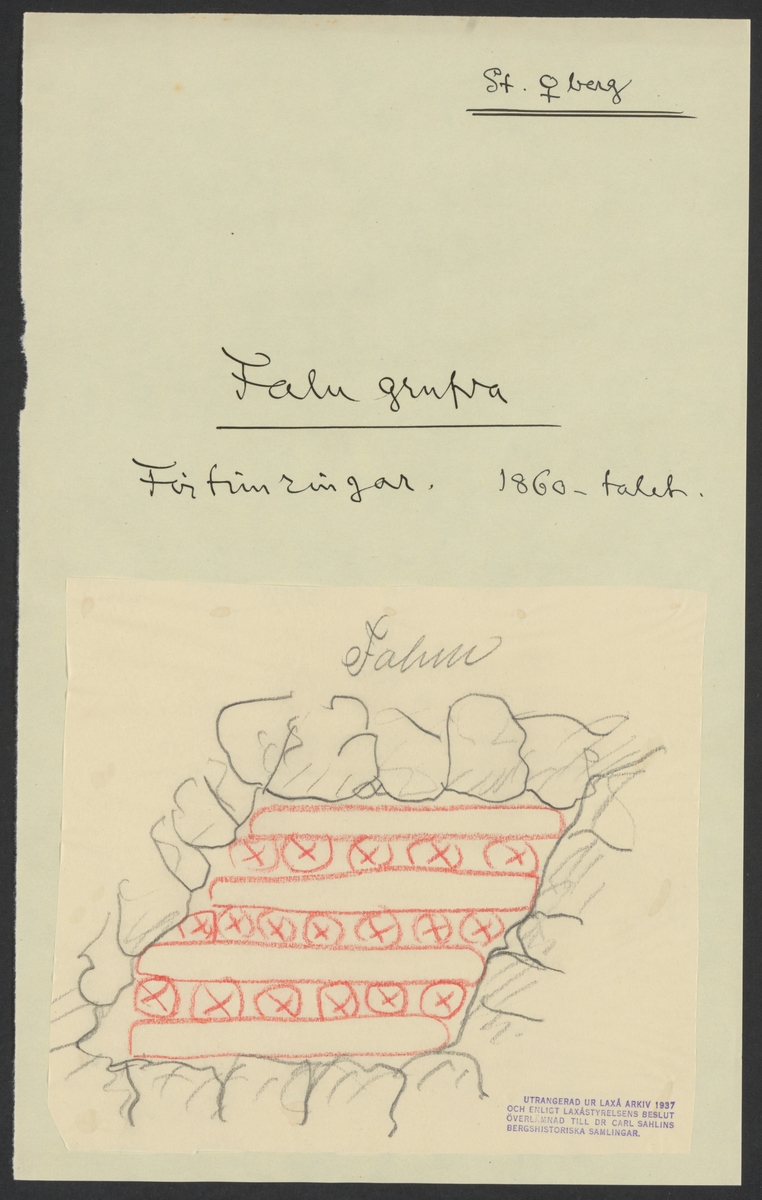 St. ♀ berg
Falu grufva
Förtimringar. 1860-talet.
Falun
UTRANGERAD UR LAXÅ ARKIV 1937
OCH ENLIGT LAXÅSTYRELSENS BESLUT
ÖVERLÄMNAD TILL DR CARL SAHLINS
BERGSHISTORISKA SAMLINGAR.